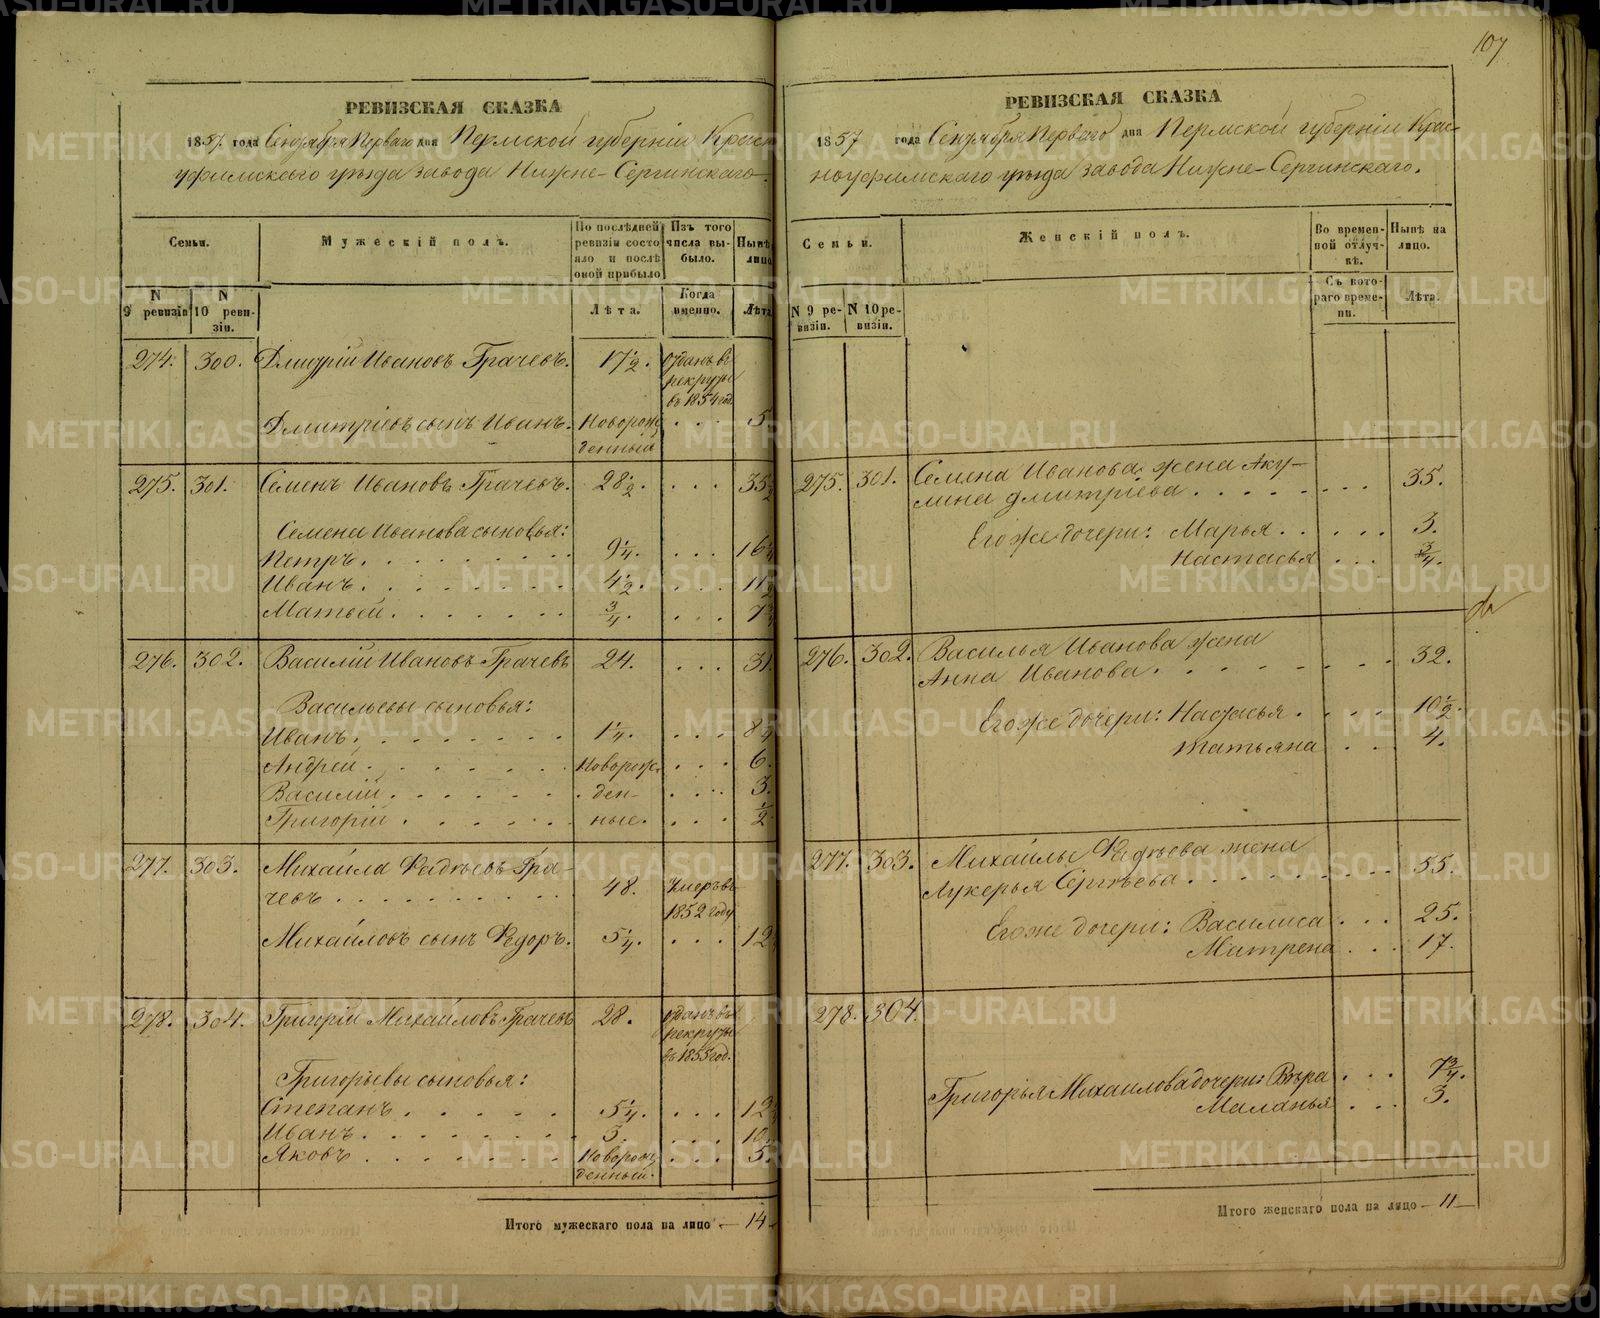 107
РЕВИЗСКАЯ СКАЗКА
1857. года Сентября Перваго дня Пермской губерніи Красно
уфимскаго уѣзда завода Нижне-Сергинскаго.
Семьи.
Мужескій полъ.
По послѣдней ревизіи состояло и послѣ оной прибыло
Изъ того числа выбыло.
Нынѣ лицо
N 9 ревизіи
N 10 ревизіи.
Лѣта.
Когда именно.
Лѣта
274. 300. Дмитрій Ивановъ Грачевъ. 17½. Отданъ въ
рекруты
въ 1854 год.
Дмитріевъ сынъ Иванъ. Новорож
денный . . . 5
275. 301. Семенъ Ивановъ Грачевъ. 28½. . . . 35½
Семена Иванова сыновья:
Петръ. 9¼. . . . 16
Иванъ. 4½. . . . 11
Матвей. ¾ . . . 7
276. 302. Василій Ивановъ Грачевъ 24. . . . 31
Васильевы сыновья:
Иванъ. 1¼. . . . 8
Андрей. Новорож- . . . 6.
Василій. ден- . . . 3.
Григорій. ные. . . . ½
277. 303. Михайла Фадѣевъ Гра-
чевъ 48. Умеръ въ
1852 году
Михайловъ сынъ Федоръ. 5¼. . . . 12
278. 304. Григорій Михайловъ Грачевъ 28. Отданъ въ
рекруты
въ 1855 год.
Григорьевы сыновья:
Степанъ. 5¼. . . . 12
Иванъ. 3. . . . 10
Яковъ. Новорож
денный. . . . 5.
Итого мужескаго пола на лицо — 14 —
РЕВИЗСКАЯ СКАЗКА
1857 года Сентября Перваго дня Пермской губерніи Крас-
ноуфимскаго уѣзда завода Нижне-Сергинскаго.
Семьи.
Женскій полъ.
Во временной отлучкѣ.
Нынѣ на лицо.
N 9 ревизіи.
N 10 ревизіи.
Съ котораго времени.
Лѣта.
275. 301. Семена Иванова жена Аку-
лина Дмитріева 35.
Его же дочери: Марья 3.
Настасья ¾.
276. 302. Василья Иванова жена
Анна Иванова 32.
Его же дочери: Настасья 10½.
Татьяна 4.
277. 303. Михайлы Фадѣева жена
Лукерья Сергѣева 55.
Его же дочери: Василиса 25.
Матрена 17.
278. 304.
Григорья Михайлова дочери: Вѣра 7¾.
Маланья 3.
Итого женскаго пола на лицо — 11 —
METRIKI.GASO-URAL.RU